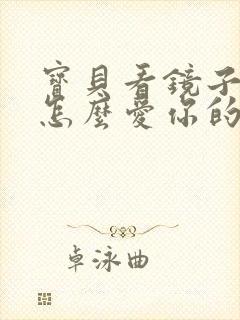 寶貝看鏡子
怎麼愛你的
卓泳曲